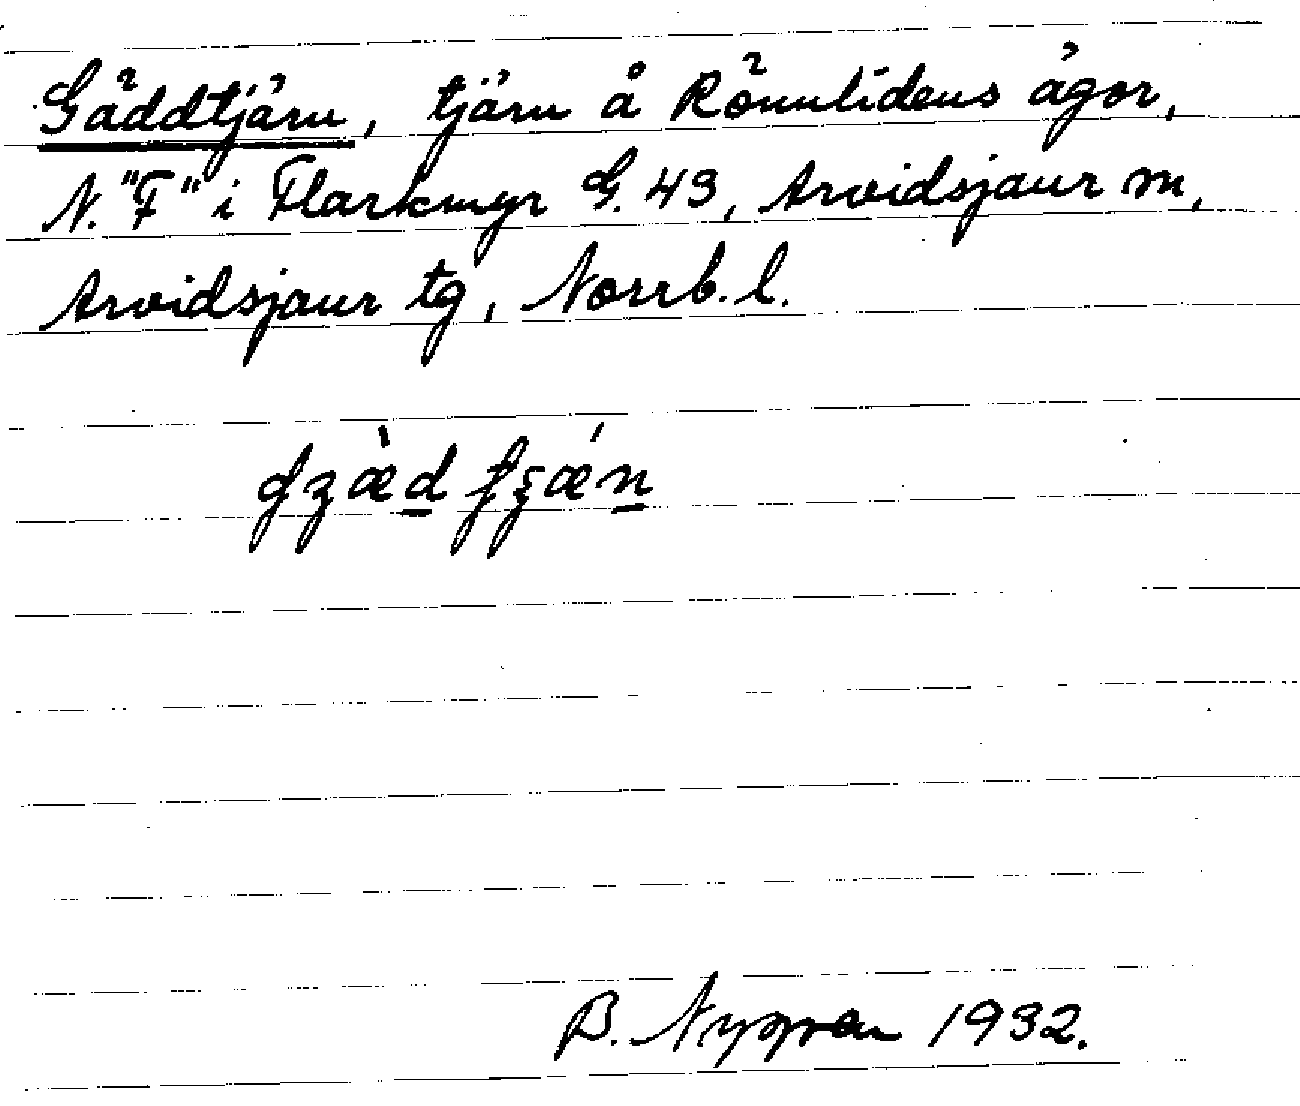 Gäddtjärn, tjärn å Rönnlidens ägor,
N. "F" i Flarkmyr G. 43, Arvidsjaur m,
Arvidsjaur tg, Norrb. l.
B. Nygren 1932.